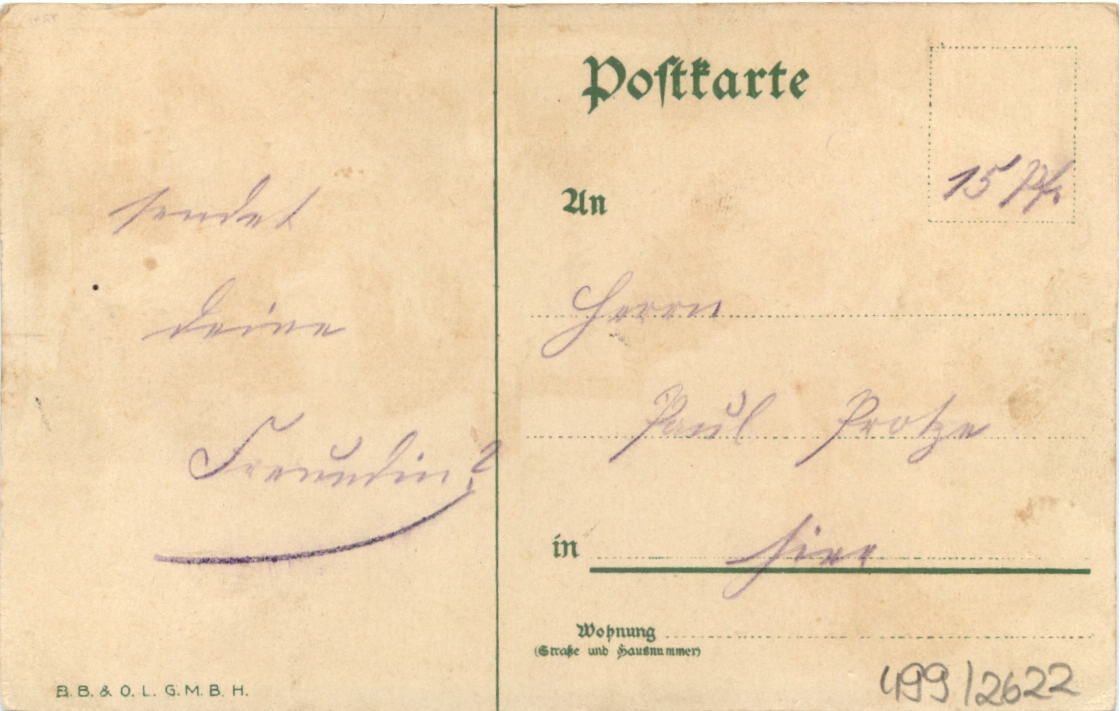 sendet
deine
Freundin?
B. B. & O. L. G. M. B. H.
Postkarte
15 Pf.
An
Herrn
Paul Protze
in hier
Wohnung
(Straße und Hausnummer)
499/2622